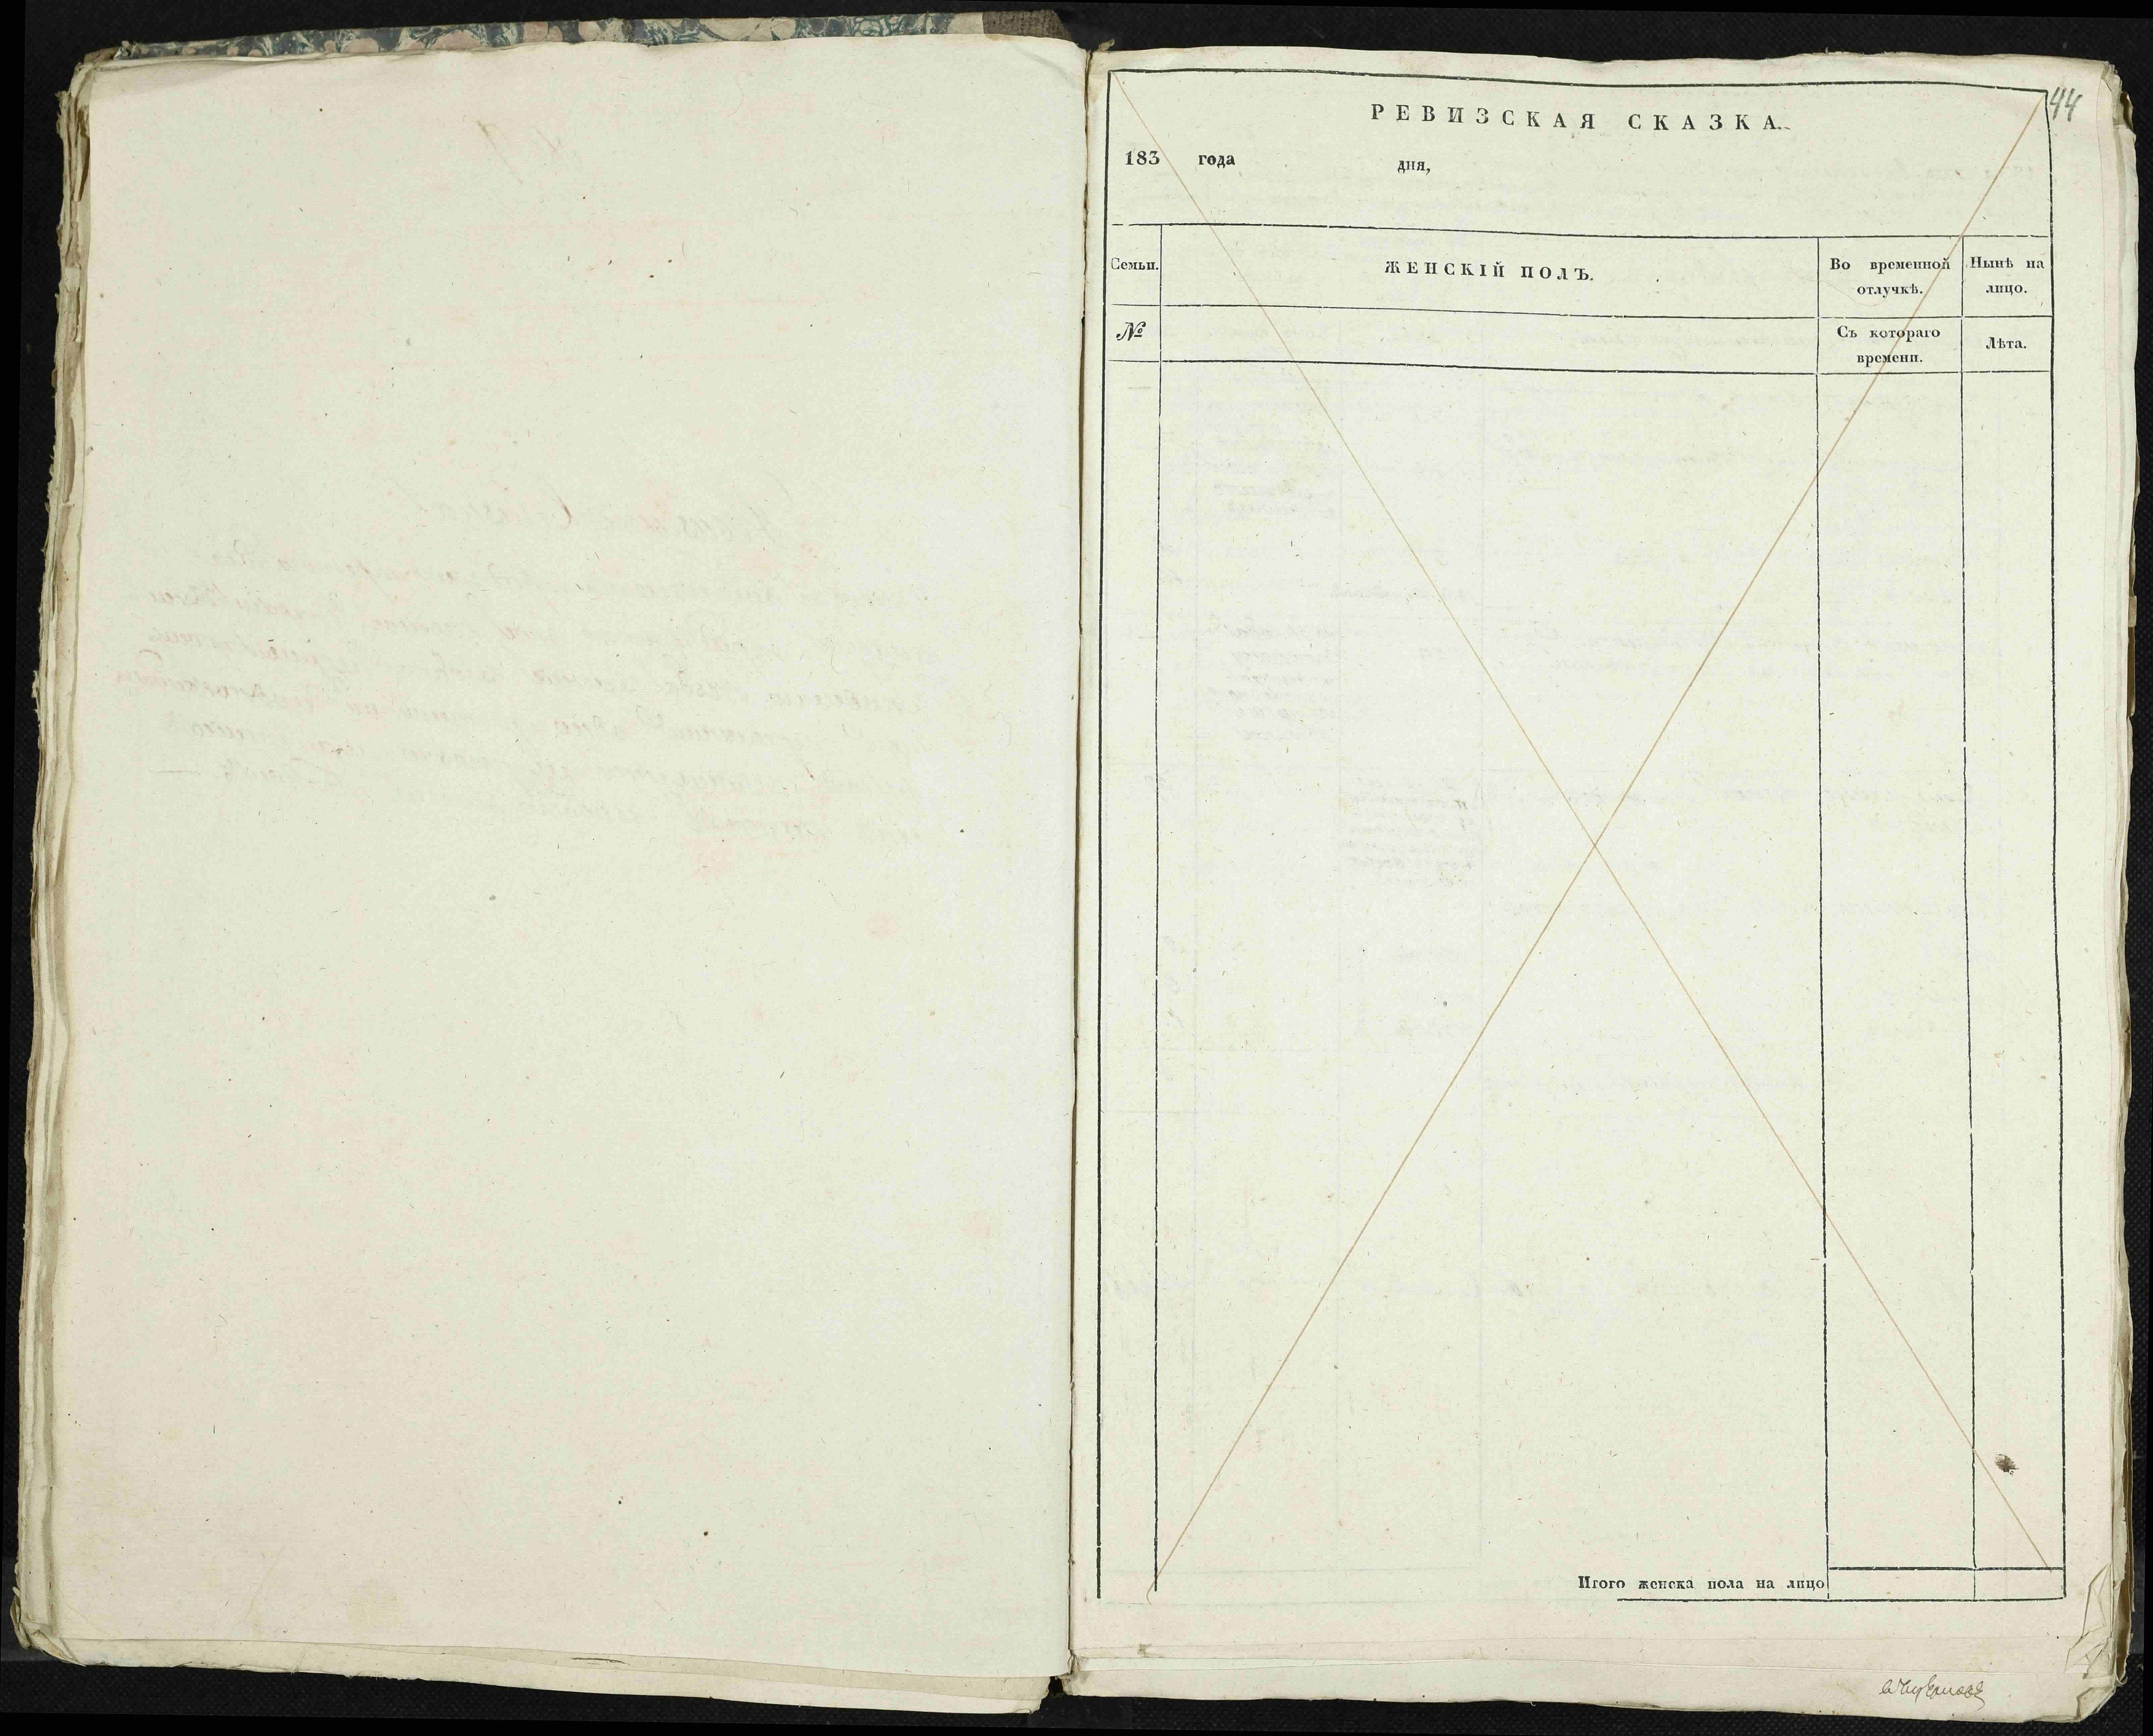 44
РЕВИЗСКАЯ СКАЗКА.
183 года дня,
Семьи.
ЖЕНСКІЙ ПОЛЪ.
Во временной отлучкѣ.
Нынѣ на лицо.
№
Съ котораго времени.
Лѣта.
Итого женска пола на лицо